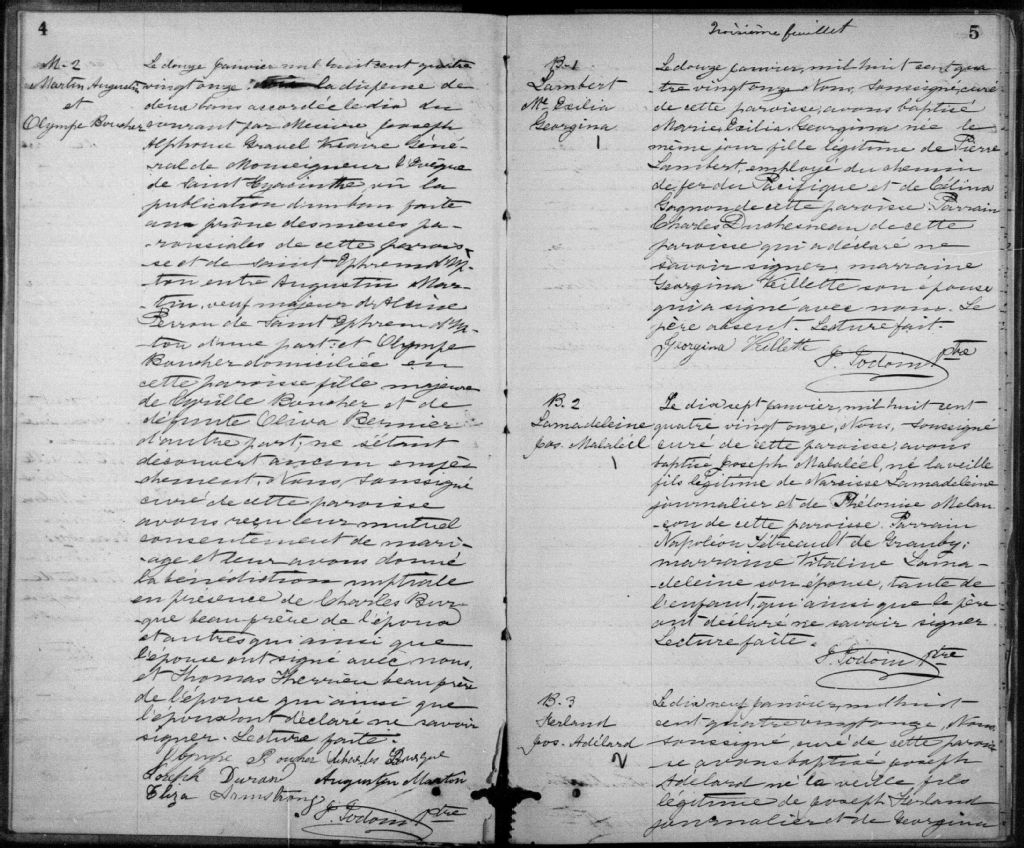 4
M-2
Martin Augustin
et
Olympe Boucher
Le douze janvier mil huit cent quatre
vingt onze la dispense de
deux bans accordée le dix du
courant par Messire Joseph
Alphonse Gravel Vicaire Géné-
-ral de Monseigneur l'Evêque
de Saint Hyacinthe vû la
publication d'un ban faite
au prône des messes pa-
-roissiales de cette parois-
-se et de Saint Ephrem d'Up-
-ton entre Augustin Mar-
-tin, veuf majeur d'
Perron de Saint Ephrem d'Up-
ton d'une part et Olympe
Boucher domiciliée en
cette paroisse fille majeure
de Cyrille Boucher et de
défunte Oliva Bernier
d'autre part, ne s'étant
découvert aucun empê-
chement, Nous, Soussigné
curé de cette paroisse
avons reçu leur mutuel
consentement de mari-
-age et leur avons donné
la bénédiction nuptiale
en présence de Charles Bur-
-que beau frère de l'époux
et autres qui ainsi que
l'épouse ont signé avec nous,
et Thomas Therrien beau frère
de l'épouse qui ainsi que
l'époux ont déclaré ne savoir
signer. Lecture faite.
Olympe Boucher Charles Bourque
Joseph Durand Augustin Martin
Eliza Armstrong
J. Jodoin Ptre
Troisième feuillet
5
B-1
Lambert
Me Exilia
Georgina
1
Le douze janvier, mil huit cent qua
tre vingt onze Nous, Soussigné, curé
de cette paroisse, avons baptisé
Marie Exilia Georgina née le
même jour fille légitime de Pierre
Lambert, employé du chemin
de fer du Pacifique et de Célina
Gagnon de cette paroisse. Parrain
Charles Duchesneau de cette
paroisse qui a déclaré ne
savoir signer, marraine
Georgina Veillette son épouse
qui a signé avec nous. Le
père absent. Lecture fait-
Georgina Veillette
J. Jodoin Ptre
B. 2
Lamadeleine
Jos. Malaléel
1
Le dix sept janvier, mil huit cent
quatre vingt onze, Nous, Soussigné
curé de cette paroisse, avons
baptisé Joseph Malaléel, né la veille
fils légitime de Narcisse Lamadeleine
journalier et de Phélonise Melan
-çon de cette paroisse. Parrain
Napoléon Tétreault de Granby;
marraine Vitaline Lama-
-deleine son épouse, tante de
l'enfant, qui ainsi que le père
ont déclaré ne savoir signer.
Lecture faite.
J. Jodoin Ptre
B. 3
Herland
Jos. Adélard
Le dix neuf janvier, mil huit
cent quatre vingt onze, Nous
soussigné curé de cette parois-
-se avons baptisé Joseph
Adélard né la veille fils
légitime de Joseph Herland
journalier et de Georgina